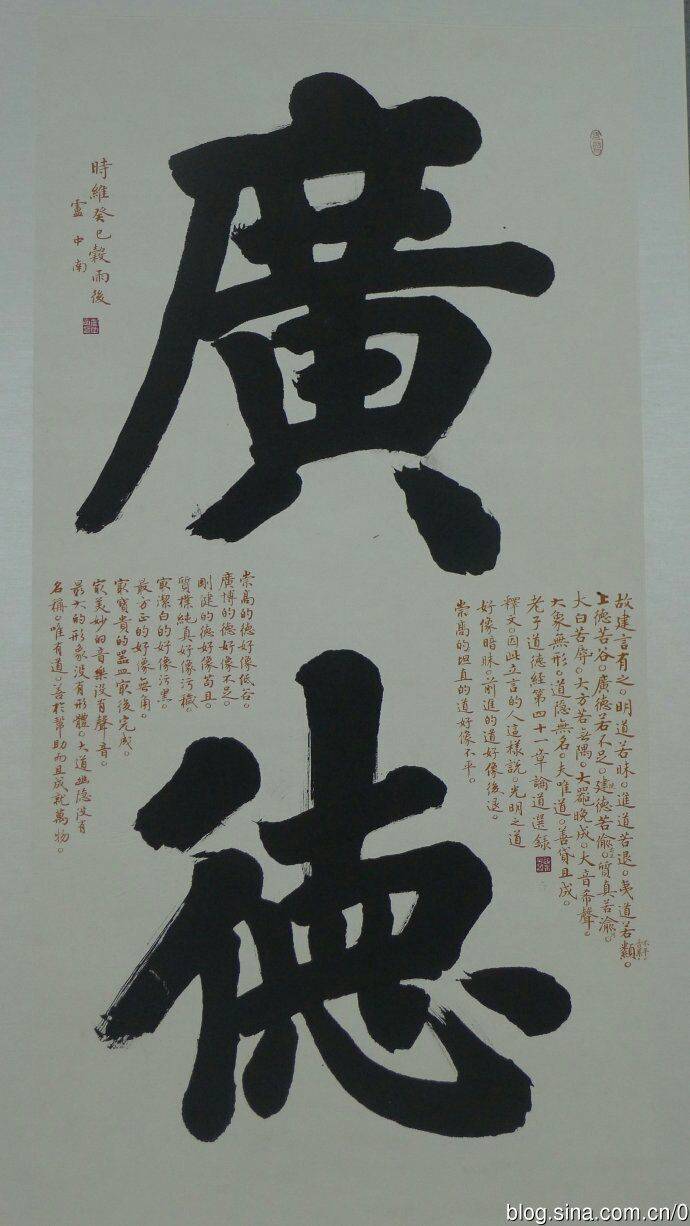 廣
德
故建言有之。明道若昧。進道若退。夷道若纇。
上德若谷。廣德若不足。建德若偷。質真若渝。
大白若辱。大方若無隅。大器晚成。大音希聲。
大象無形。道隱無名。夫唯道。善貸且成。
老子道德經第四十一章論道選錄
釋文。因此立言的人這樣說。光明之道
好像暗昧。前進的道好像後退。
崇高的坦直的道好像不平。
崇高的德好像低谷。
廣博的德好像不足。
剛健的德好像苟且。
質樸純真好像污穢。
寂潔白的好像污黑。
最方正的好像無角。
寂寶貴的器皿寂後完成。
寂美妙的音樂沒有聲音。
最大的形象沒有形體。大道幽隱沒有
名稱。唯有道。善於幫助而且成就萬物。
時維癸巳穀雨後
盧中南
blog.sina.com.cn/0